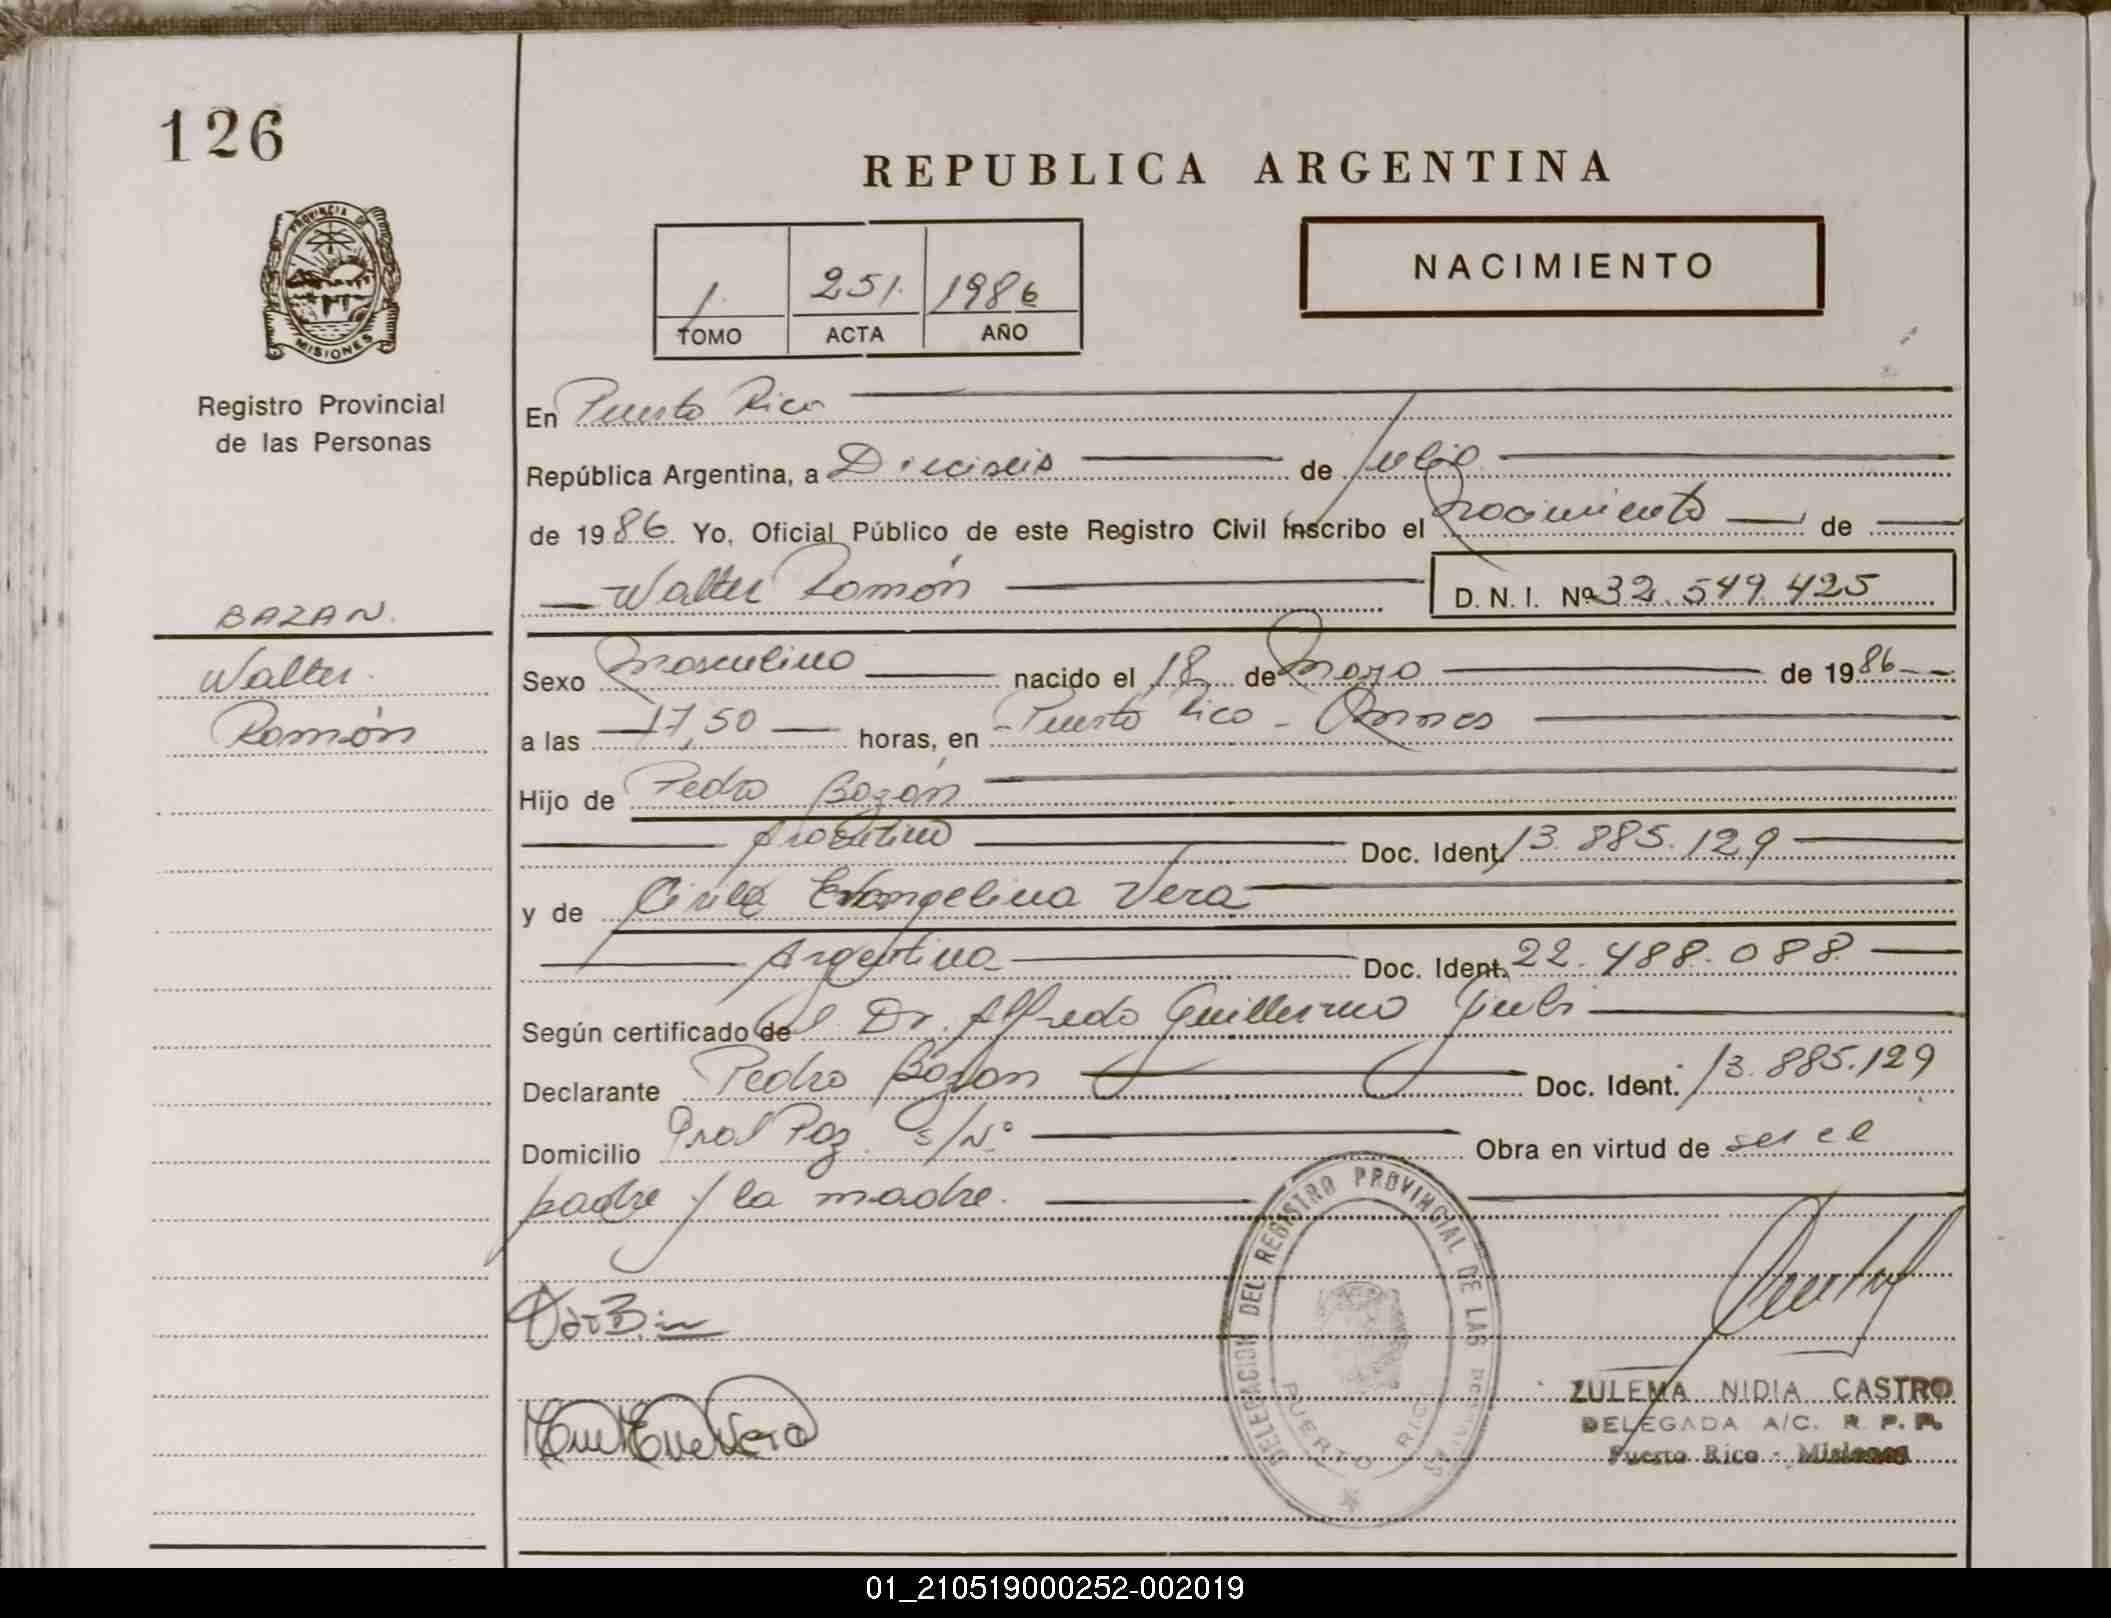 126
REPUBLICA ARGENTINA
PROVINCIA DE
MISIONES
1. 251. 1986
TOMO ACTA AÑO
NACIMIENTO
Registro Provincial
de las Personas
En Puerto Rico
República Argentina, a Dieciseis de Julio
de 1986 Yo, Oficial Público de este Registro Civil inscribo el nacimiento de
Walter Ramón D. N. I. Nº 32.549.425
BAZAN.
Walter
Ramón
Sexo masculino nacido el 18 de de 1986
a las 17,50 horas, en Puerto Rico -
Hijo de Pedro Bazán
Argentino Doc. Ident. 13.885.129
y de Evangelina Vera
Argentina Doc. Ident. 22.488.088
Según certificado del Dr. Alfredo Guillermo
Declarante Pedro Bazan Doc. Ident. 13.885.129
Domicilio Gral Paz s/Nº Obra en virtud de ser el
padre y la madre.
DELEGACION DEL REGISTRO PROVINCIAL DE LAS PERSONAS
PUERTO RICO
ZULEMA NIDIA CASTRO
DELEGADA A/C. R. P. P.
Puerto Rico - Misiones
01_210519000252-002019